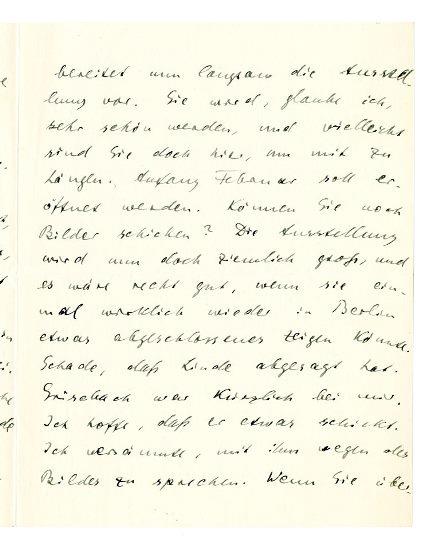 bereitet nun langsam die Ausstel-
lung vor. Sie wird, glaube ich,
sehr schön werden, und vielleicht
sind Sie doch hier, um mit zu
hängen. Anfang Februar soll er-
öffnet werden. Können Sie noch
Bilder schicken? Die Ausstellung
wird nun doch ziemlich groß, und
es wäre recht gut, wenn sie ein-
mal wirklich wieder in Berlin
etwas abgeschlossenes zeigen könnte.
Schade, daß Linde abgesagt hat.
Grisebach war kürzlich bei mir.
Ich hoffe, daß er etwas schickt.
Ich versäumte, mit ihm wegen der
Bilder zu sprechen. Wenn Sie über-